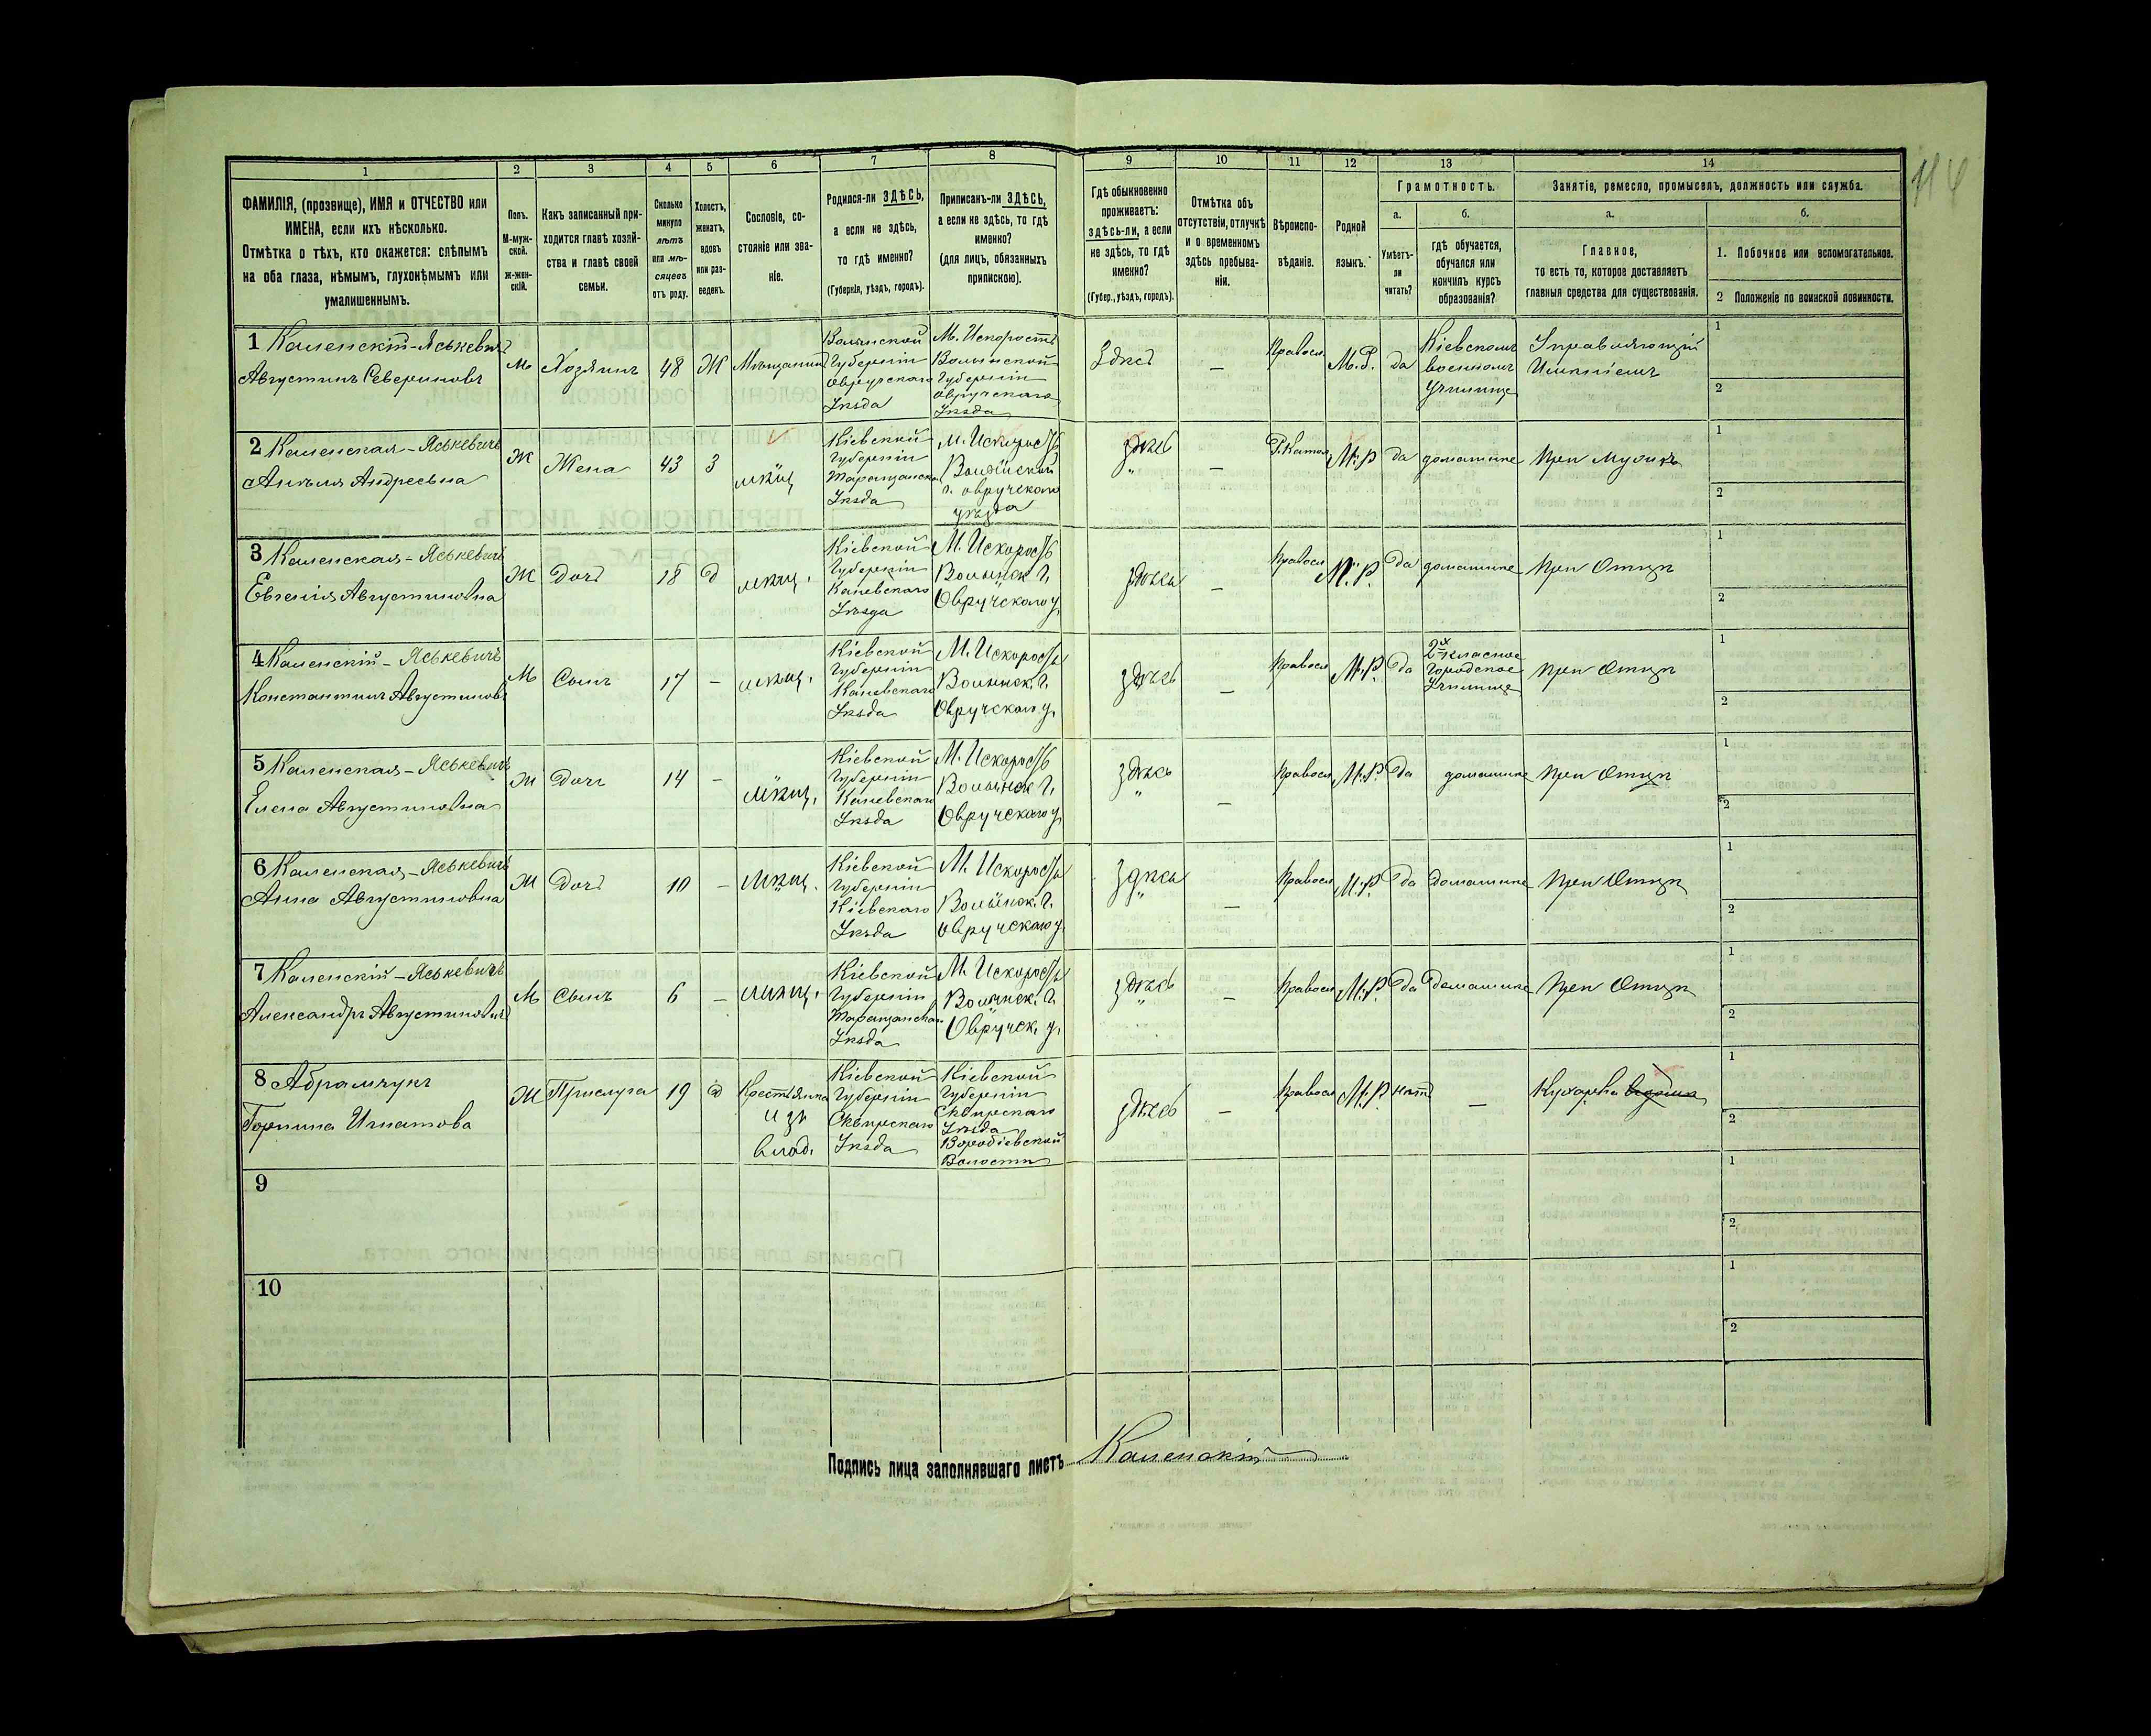 114
1 2 3 4 5 6 7 8 9 10 11 12 13 14
ФАМИЛІЯ, (прозвище), ИМЯ и ОТЧЕСТВО или
ИМЕНА, если ихъ нѣсколько.
Отмѣтка о тѣхъ, кто окажется: слѣпымъ
на оба глаза, нѣмымъ, глухонѣмымъ или
умалишеннымъ.
Полъ.
М-муж-
ской.
ж-жен-
скій.
Какъ записанный при-
ходится главѣ хозяй-
ства и главѣ своей
семьи.
Сколько
минуло
лѣтъ
или мѣ-
сяцевъ
отъ роду.
Холостъ,
женатъ,
вдовъ
или раз-
веденъ.
Сословіе, со-
стояніе или зва-
ніе.
Родился-ли ЗДѢСЬ,
а если не здѣсь,
то гдѣ именно?
(Губернія, уѣздъ, городъ).
Приписанъ-ли ЗДѢСЬ,
а если не здѣсь, то гдѣ
именно?
(для лицъ, обязанныхъ
припискою).
Гдѣ обыкновенно
проживаетъ:
здѣсь-ли, а если
не здѣсь, то гдѣ
именно?
(Губер., уѣздъ, городъ).
Отмѣтка объ
отсутствіи, отлучкѣ
и о временномъ
здѣсь пребыва-
ніи.
Вѣроиспо-
вѣданіе.
Родной
языкъ.
Грамотность.
а.
Умѣетъ-
ли
читать?
б.
гдѣ обучается,
обучался или
кончилъ курсъ
образованія?
Занятіе, ремесло, промыселъ, должность или служба.
а.
Главное,
то есть то, которое доставляетъ
главныя средства для существованія.
б.
1. Побочное или вспомогательное.
2 Положеніе по воинской повинности.
1 Каменскій-Яськевичъ
Августинъ Севериновъ
М
Хозяинъ
48
Ж
Мѣщанинъ
Волынской
Губерніи
Овручскаго
Уѣзда
М. Искорость
Волынской
Губерніи
Овручскаго
Уѣзда
Здѣсь
–
Правосл
М.Р.
да
Кіевскомъ
военномъ
Училище
Управляющій
Имѣніемъ
1
2
2 Каменская-Яськевичъ
Анеля Андреевна
Ж
Жена
43
З
мѣщ
Кіевской
Губерніи
Таращанска
Уѣзда
М. Искорость
Волынской
г. Овручского
уѣзда
здѣсь
–
Р. Катол
М.Р
да
домашнее
При Мужѣ
1
2
3 Каменская-Яськевичъ
Евгенія Августиновна
Ж
Дочь
18
д
мѣщ.
Кіевской
Губерніи
Каневскаго
Уѣзда
М. Искорость
Волынск. г.
Овручского у.
здѣсь
–
Правосл
М.Р.
да
домашнее
При Отцѣ
1
2
4 Каменскій-Яськевичъ
Константинъ Августиновъ
М
Сынъ
17
–
мѣщ.
Кіевской
Губерніи
Каневскаго
Уѣзда
М. Искорость
Волынск. г.
Овручского у.
здѣсь
–
Правосл
М.Р.
да
2х класное
Городское
Училище
При Отцѣ
1
2
5 Каменская-Яськевичъ
Елена Августиновна
Ж
Дочь
14
–
мѣщ.
Кіевской
Губерніи
Каневскаго
Уѣзда
М. Искорость
Волынск г.
Овручского у.
здѣсь
–
Правосл
М.Р.
да
домашнее
При Отцѣ
1
2
6 Каменская-Яськевичъ
Анна Августиновна
Ж
Дочь
10
–
Мѣщ.
Кіевской
Губерніи
Кіевскаго
Уѣзда
М. Искорость
Волынск. г.
Овручского у.
Здѣсь
–
Правосл
М.Р.
да
Домашнее
При Отцѣ
1
2
7 Каменскій-Яськевичъ
Александръ Августиновъ
М
Сынъ
6
–
мѣщ.
Кіевской
Губерніи
Таращанска
Уѣзда
М. Искорость
Волынск. г.
Овручск. у.
здѣсь
–
Правосл
М.Р.
да
Домашнее
При Отцѣ
1
2
8 Абрамчукъ
Горпина Игнатова
Ж
Прислуга
19
д
Крестьянка
изъ
влад.
Кіевской
Губерніи
Сквирскаго
Уѣзда
Кіевской
Губерніи
Сквирскаго
Уѣзда
Волости
здѣсь
–
Правосл
М.Р
нѣтъ
–
Кухарка
1
2
9
1
2
10
1
2
Подпись лица заполнявшаго листъ Каменскій